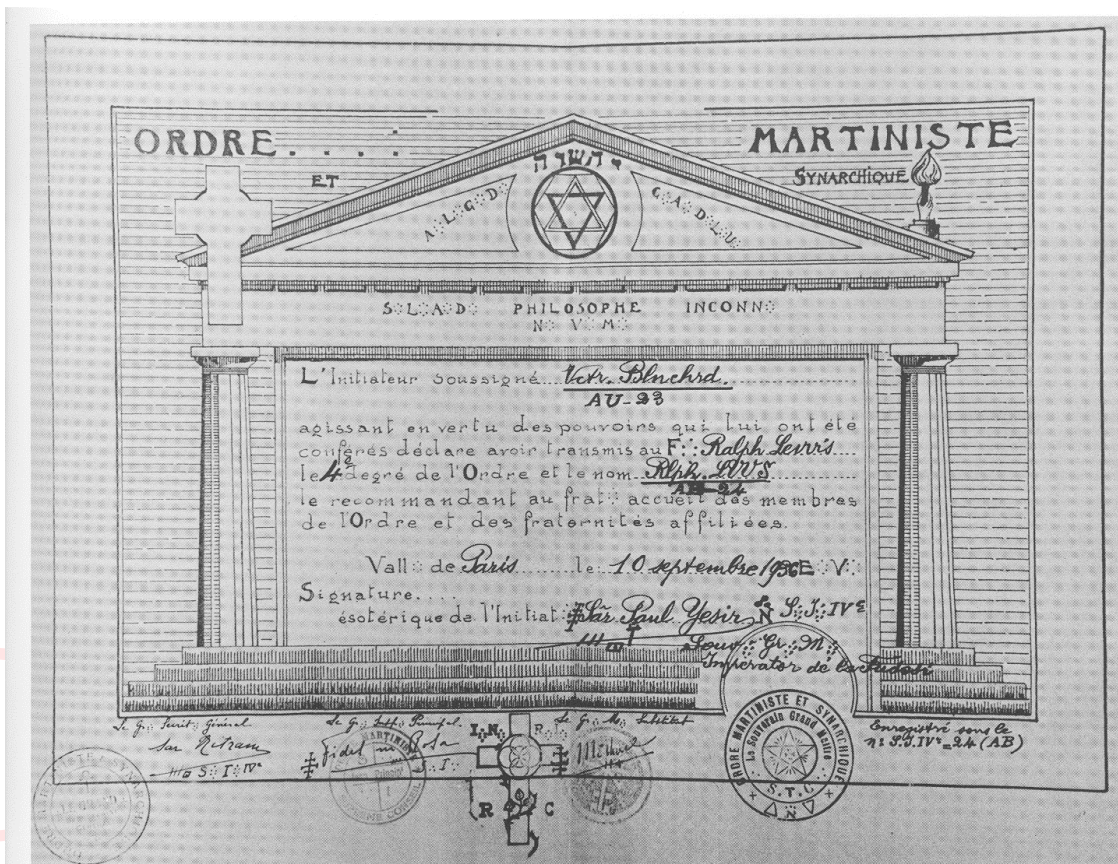 ORDRE....
MARTINISTE
ET
SYNARCHIQUE
יהשוה
A∴L∴G∴D∴
G∴A∴D∴L∴U∴
S∴L∴A∴D∴ PHILOSOPHE INCONN∴
N∴ V∴ M∴
L'Initiateur soussigné... Vctr. Blnchrd.
AU-23
agissant en vertu des pouvoirs qui lui ont été
conférés déclare avoir transmis au F∴ Ralph Lewis
le 4e degré de l'Ordre et le nom Rlph. LWS
AB-24
le recommandant au frat∴ accueil des membres
de l'Ordre et des fraternités affiliées.
Vall∴ de Paris ..... le: 10 septembre 1936 E∴ V∴
Signature....
ésotérique de l'Initiat∴ Sâr Paul Yesir S∴I∴IVe
Souv∴ Gr∴ M∴
Imperator de la Fudosi
Le G∴ Secrét. Général
Le G∴ Insp. Principal
Le G∴ M∴ Substitut
I∴N∴R∴
S∴I∴IVe
S∴I∴
R C
ORDRE MARTINISTE ET SYNARCHIQUE
Le Souverain Grand Maître
S.T.C.
Enregistré sous le
n° S.I.IVe-24 (AB)